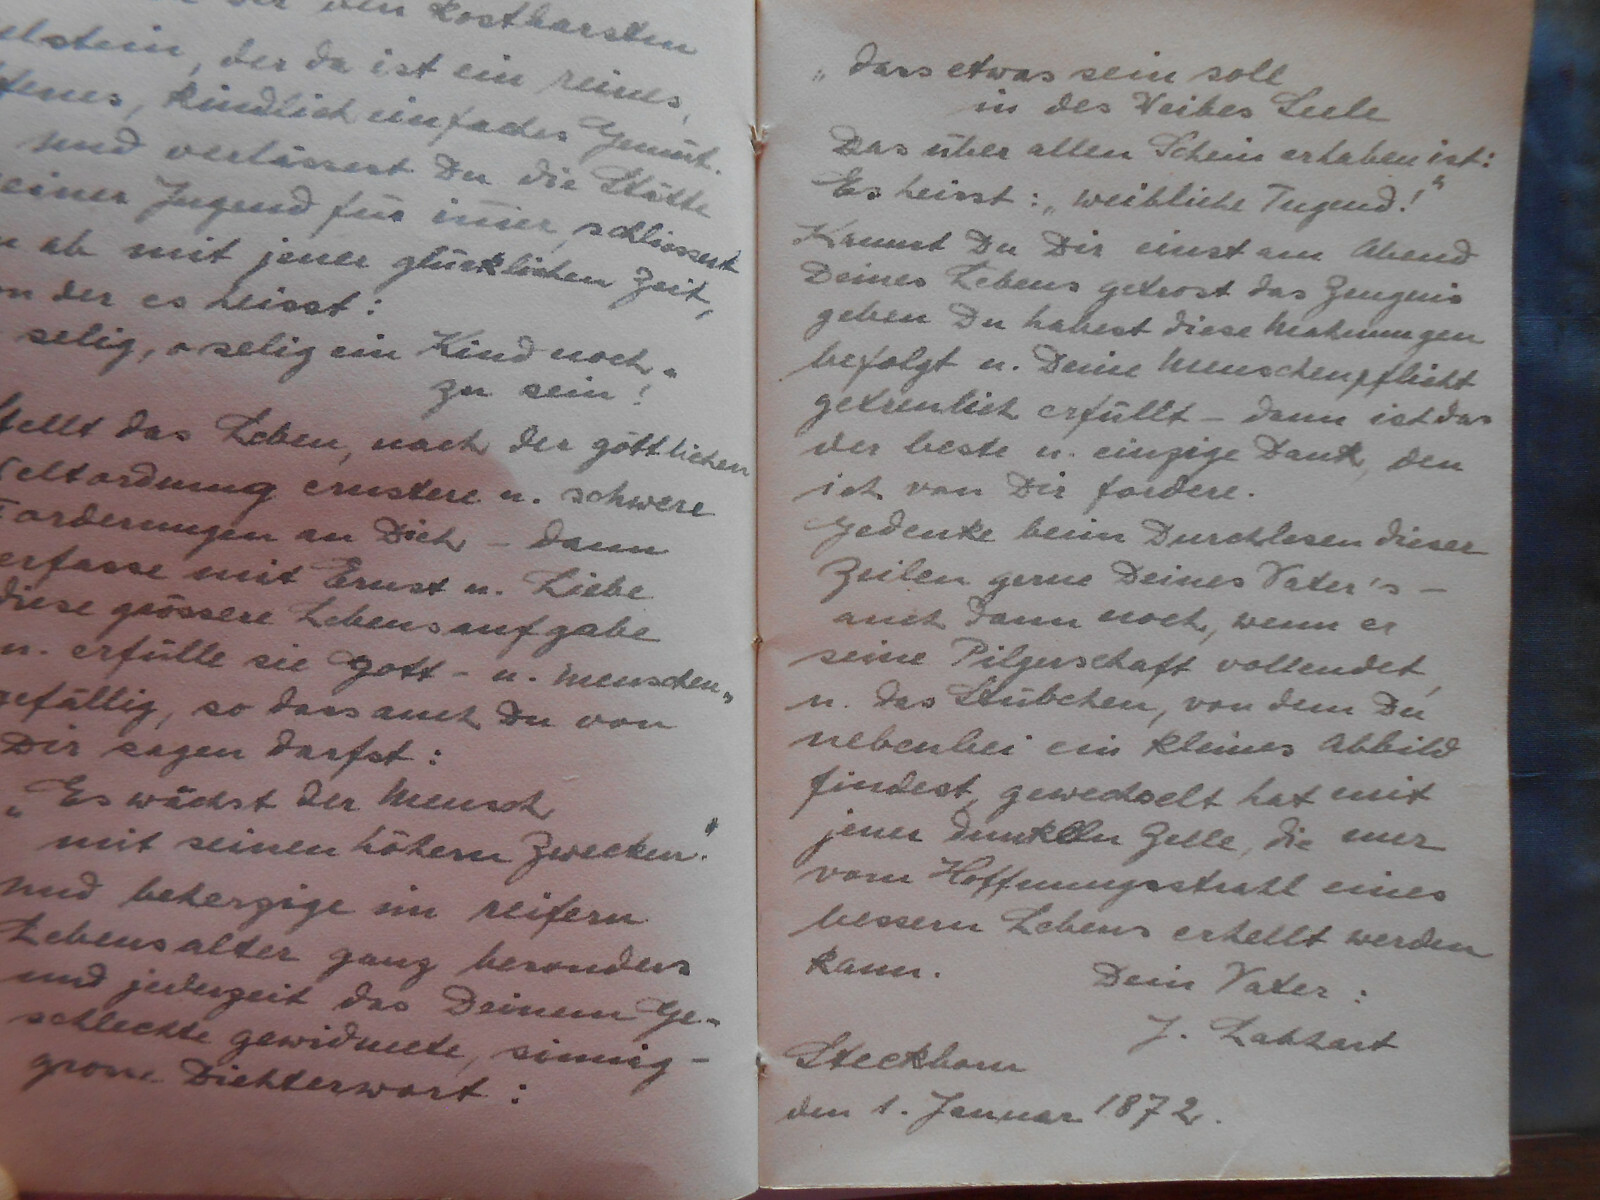 den kostbarsten
elstein, der da ist ein reines,
kindlich einfaches Gemüt.
und verlässest Du die Stätte
einer Jugend für immer, schliessest
ab mit jener glücklichen Zeit,
on der es heisst:
selig, o selig ein Kind noch„
zu sein!
stellt das Leben, nach der göttlichen
Weltordnung ernstere u. schwere
Forderungen an Dich – dann
erfasse mit Ernst u. Liebe
diese grössere Lebensaufgabe
u. erfülle sie Gott- u. Menschen„
gefällig, so dass auch Du von
Dir sagen darfst:
„Es wächst der Mensch
mit seinen höhern Zwecken."
und beherzige im reifern
Lebensalter ganz besonders
und jederzeit das Deinem Ge„
schlechte gewidmete, sinnig–
grosse Dichterwort:
„dass etwas sein soll
in des Weibes Seele
Das über allen Schein erhaben ist:
Es heisst: „weibliche Tugend!"
Kannst Du Dir einst am Abend
Deines Lebens getrost das Zeugnis
geben Du habest diese Mahnungen
befolgt u. Deine Menschenpflicht
getreulich erfüllt – dann ist das
der beste u. einzige Dank, den
ich von Dir fordere.
Gedenke beim Durchlesen dieser
Zeilen gerne Deines Vater's –
auch dann noch, wenn er
seine Pilgerschaft vollendet,
u. das Stübchen, von dem Du
nebenbei ein kleines Abbild
findest, gewechselt hat mit
jener dunkeln Zelle, die nur
vom Hoffnungsstrahl eines
bessern Lebens erhellt werden
kann. Dein Vater:
J. Labhart
Steckborn
den 1. Januar 1872.